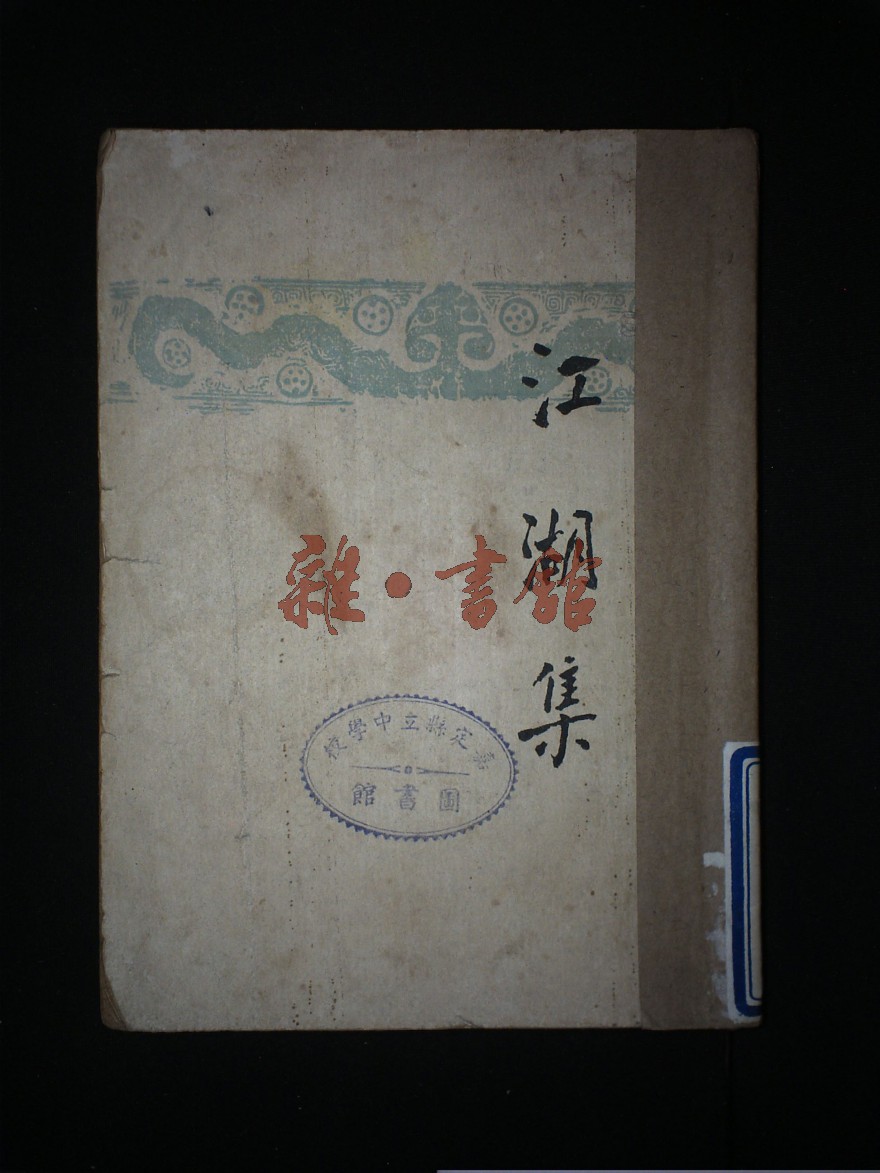 江湖集
雜·書館
定縣立中學校
圖書館